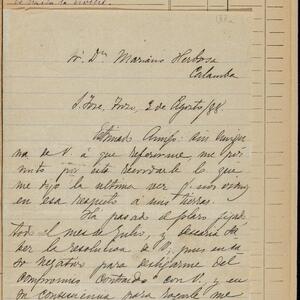 Sr. Dn. Mariano Herbosa
Calamba
S. Jose, 2 de Agosto/88.
Estimado Amigo: sin
de V. á que reforme, me per
mito por este recordarle lo que
me dijo la última vez q. nos vimos
en esa respecto á mis tierras.
Ha pasado el plazo
todo el mes de Julio, y desearia sa
ber la resolucion de V. pues en ca
so negativo para desligarme del
compromiso contraido con V. y en
su consecuencia para